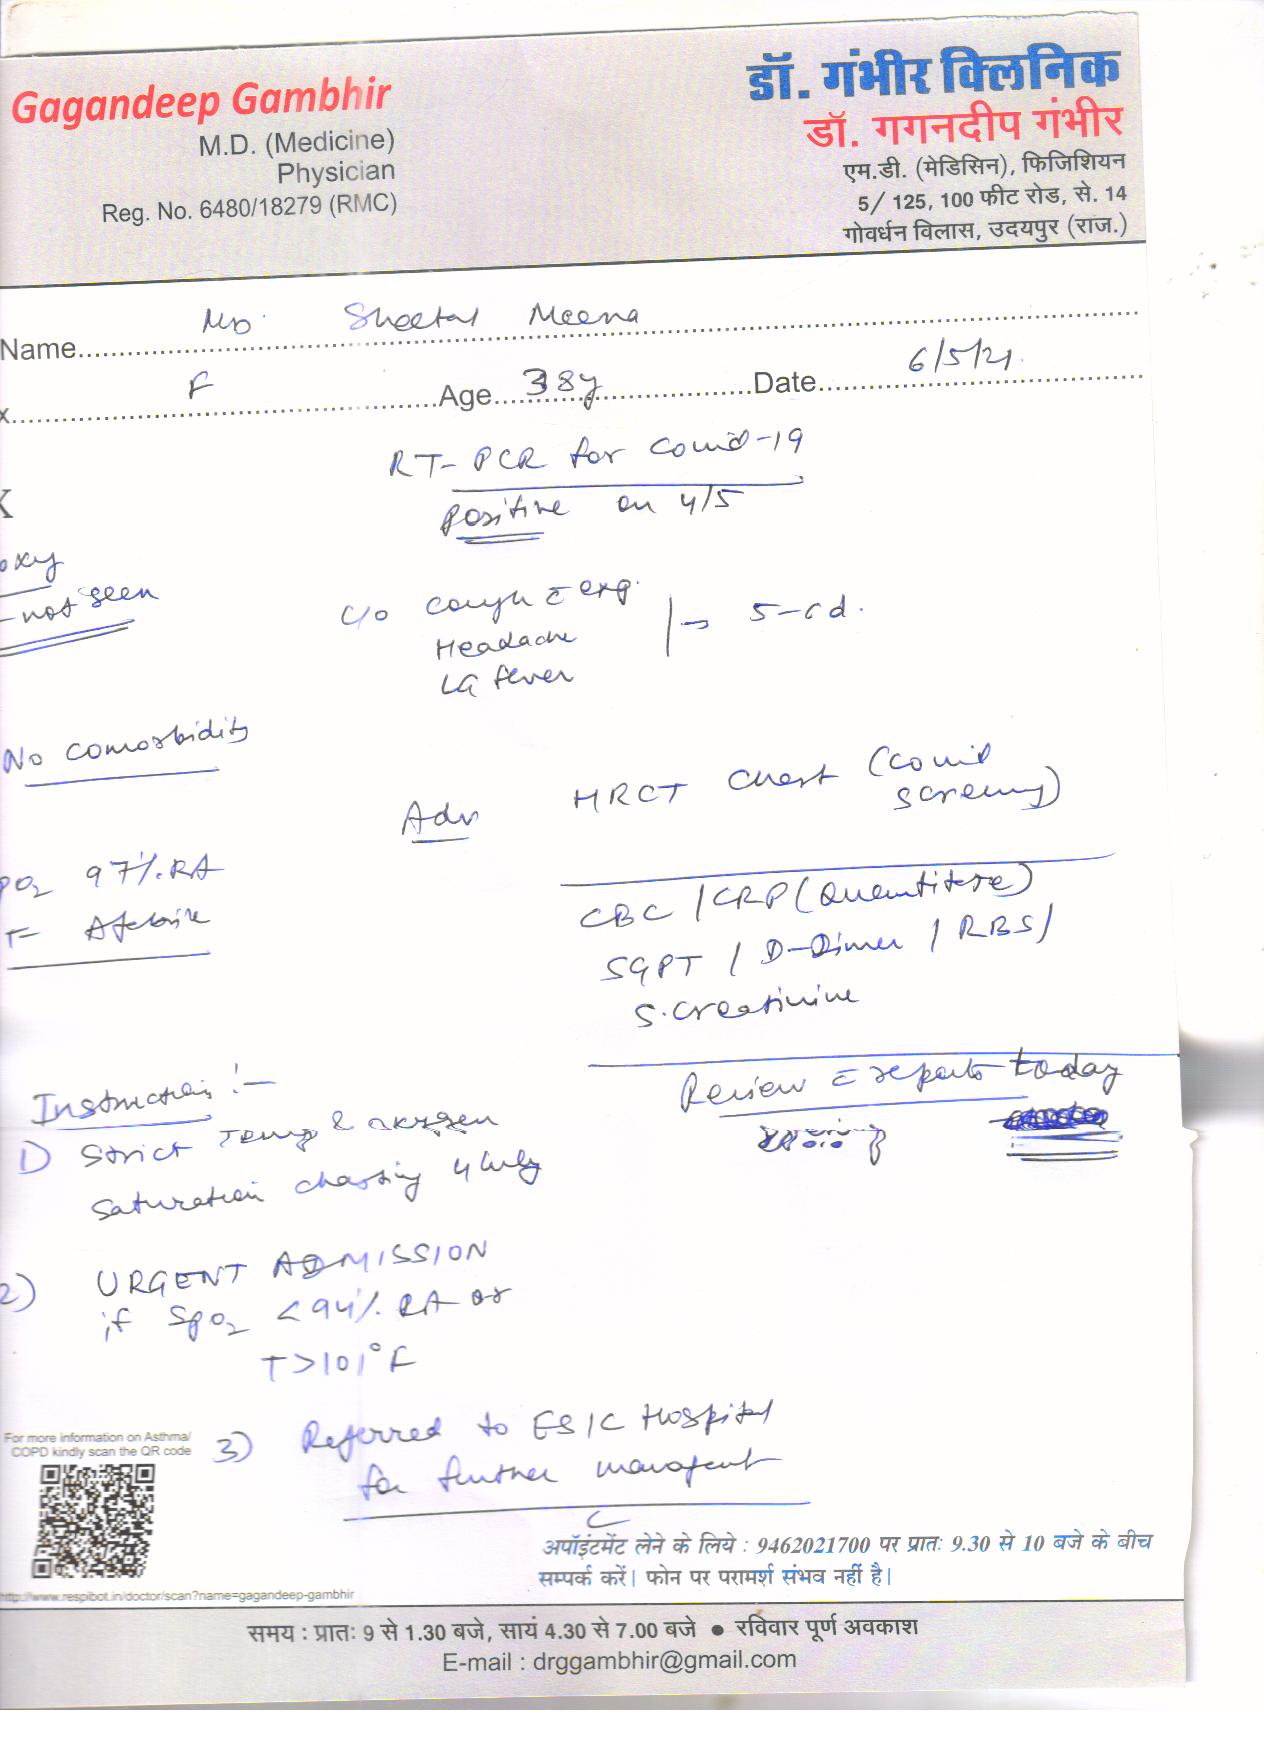 Gagandeep Gambhir
M.D. (Medicine)
Physician
Reg. No. 6480/18279 (RMC)
डॉ. गंभीर क्लिनिक
डॉ. गगनदीप गंभीर
एम.डी. (मेडिसिन), फिजिशियन
5/ 125, 100 फीट रोड, से. 14
गोवर्धन विलास, उदयपुर (राज.)
Name Ms. Sheetal Meena
x F Age 38y Date 6/5/21
RT-PCR for Covid-19
Positive on 4/5
oxy
- not seen
C/o Cough c exp.
Headache
LG fever
→ 5-6d.
No comorbidity
Adv HRCT Chest (Covid
screening)
PO2 97% RA
T- Afebrile
CBC / CRP (Quantitative)
SGPT / D-Dimer / RBS /
S. Creatinine
Review c reports today
Instructions :-
1) Strict Temp & oxygen
saturation charting 4 hrly
2) URGENT ADMISSION
if SpO2 <94% RA or
T>101°F
3) Referred to ESIC Hospital
for further managent
For more information on Asthma/
COPD kindly scan the QR code
http://www.respibot.in/doctor/scan?name=gagandeep-gambhir
अपॉइंटमेंट लेने के लिये : 9462021700 पर प्रातः 9.30 से 10 बजे के बीच
सम्पर्क करें। फोन पर परामर्श संभव नहीं है।
समय : प्रातः 9 से 1.30 बजे, सायं 4.30 से 7.00 बजे ● रविवार पूर्ण अवकाश
E-mail : drggambhir@gmail.com